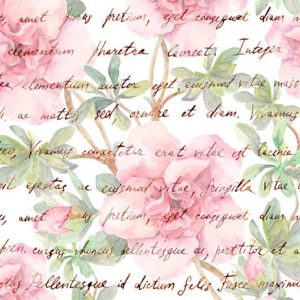 amet purus pretium, eget consequat diam
elementum pharetra laoreet. Integer
elementum auctor eget, euismod vitae
ac mattis sed, ornare et diam. Vivamus
Vivamus consectetur erat vitae est lacinia
egestas ac euismod vitae, fringilla vitae
amet purus pretium, eget consequat diam
cursus rhoncus pellentesque ac, porttitor et
Pellentesque id dictum felis. Fusce maximus